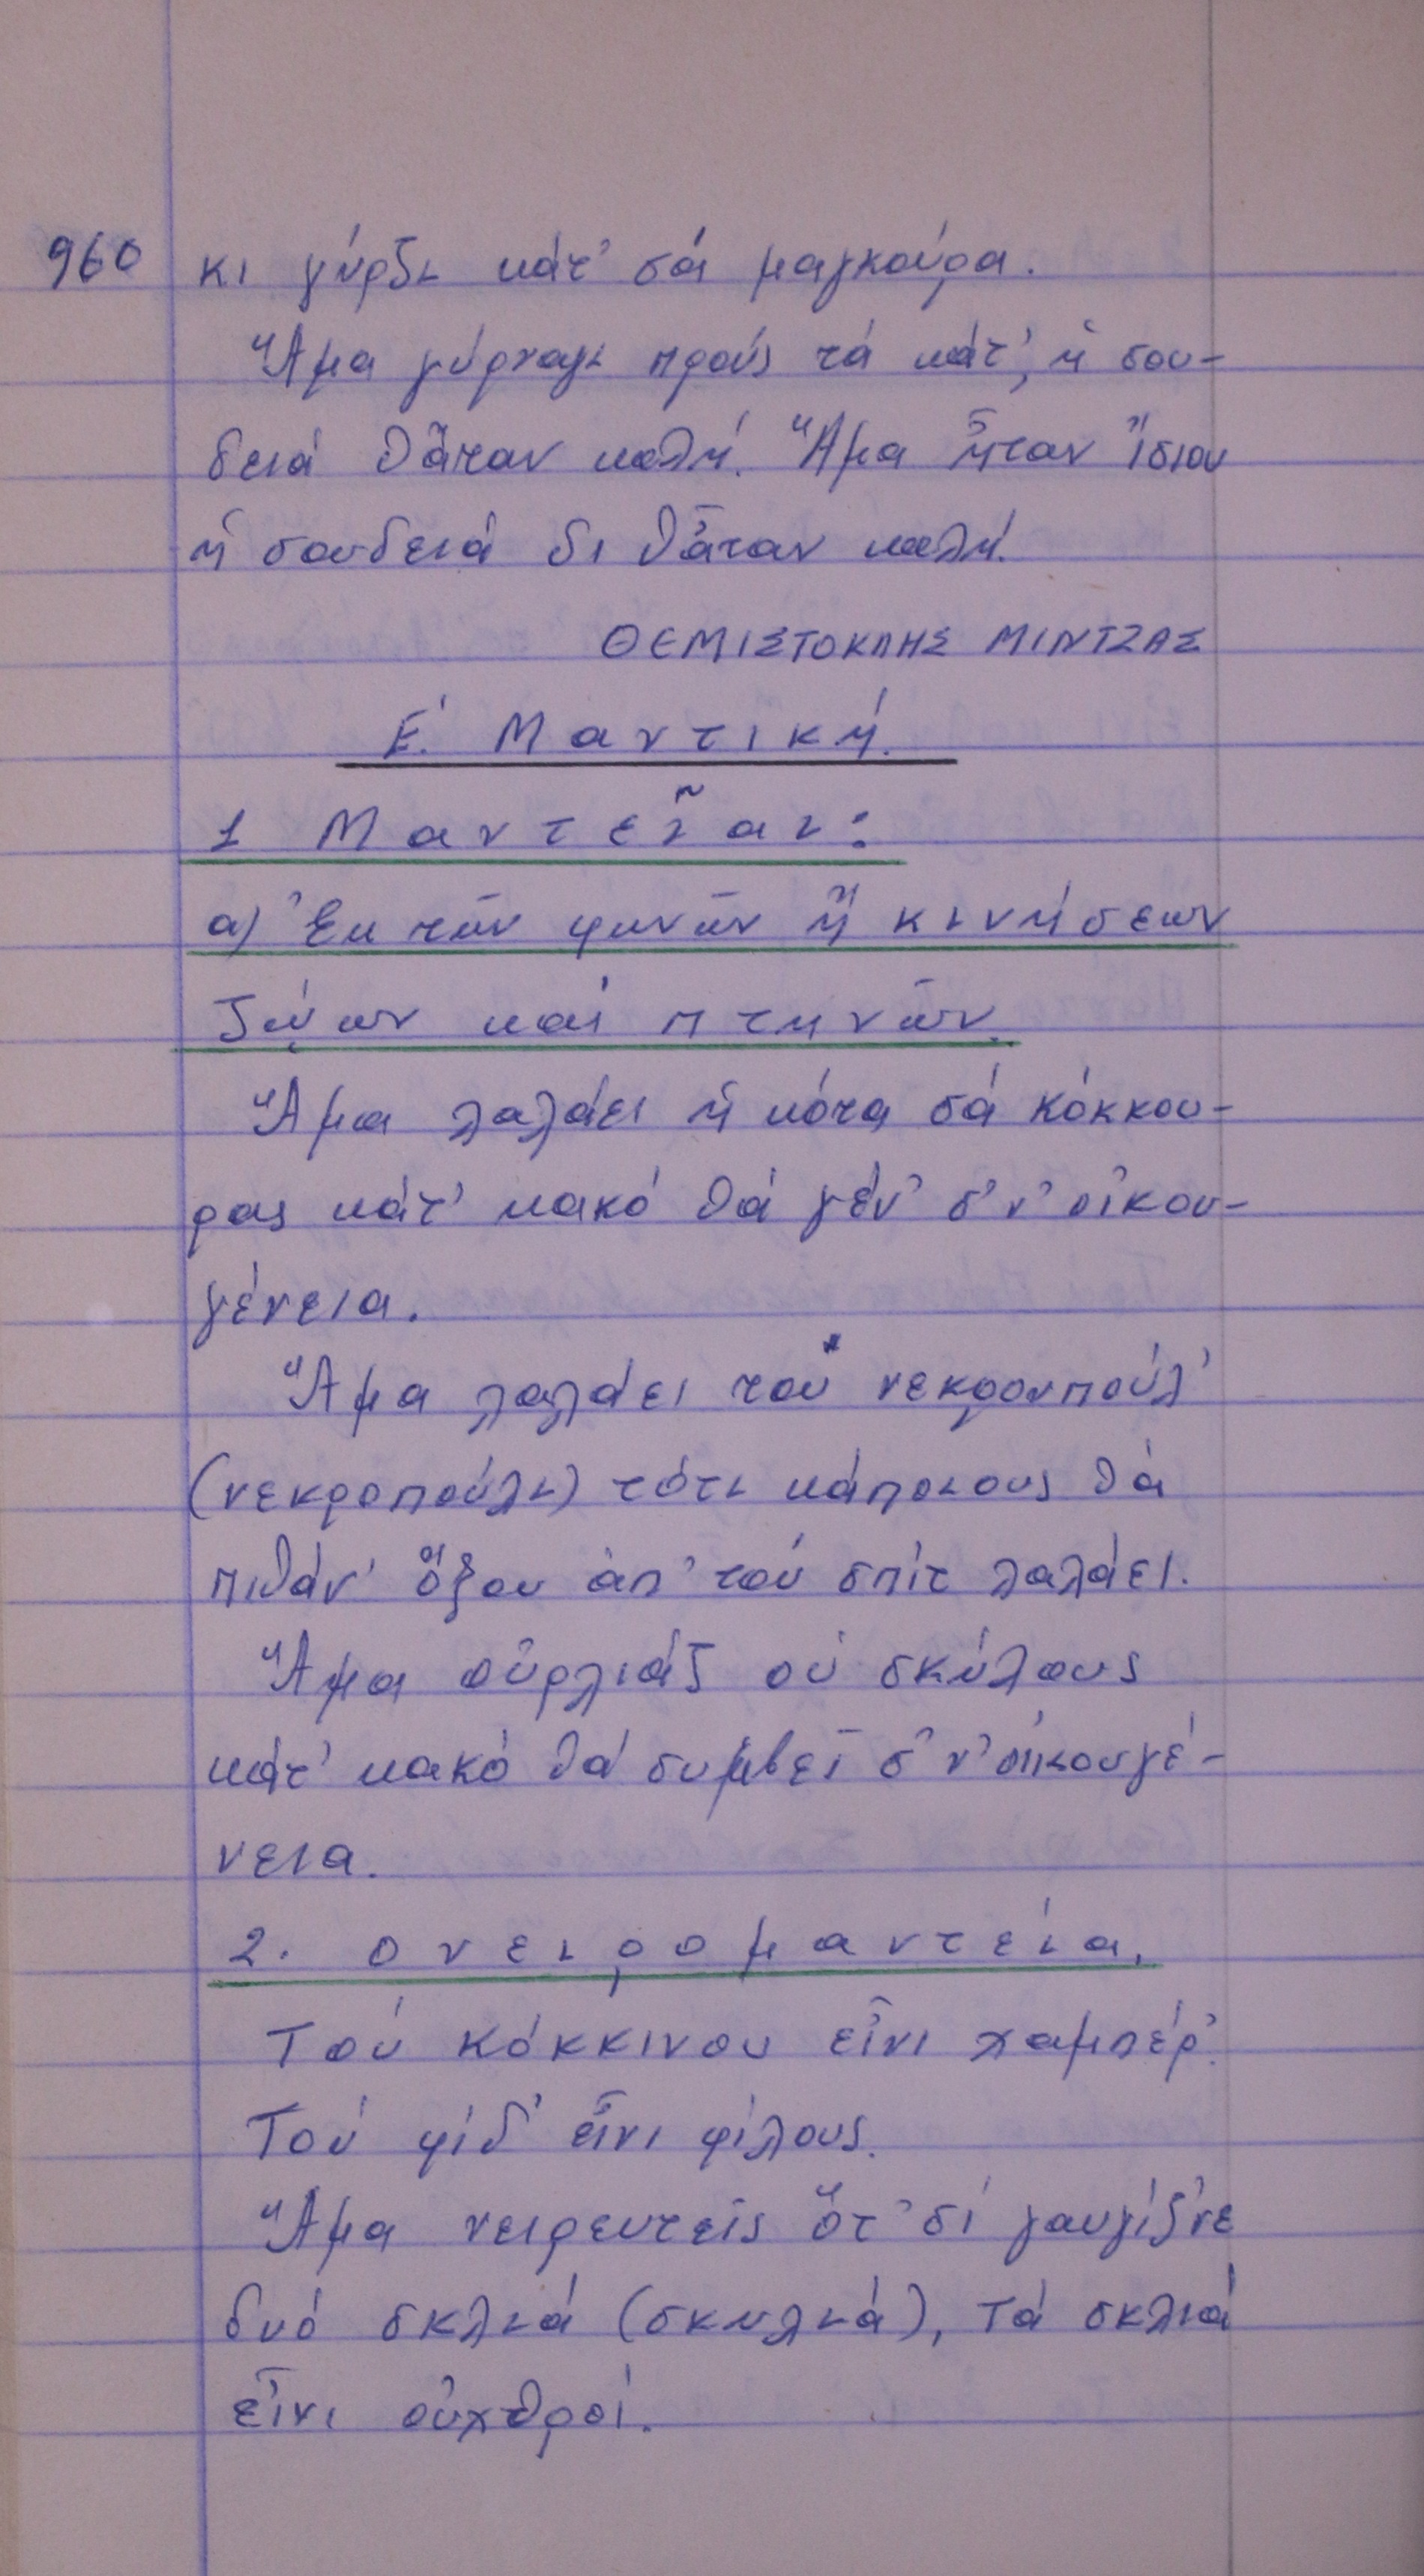 960 κι γύρζι κάτ' σά μαγκούρα.
Ἅμα γύρναγι πρός τά κάτ', ἡ σου-
δειά θἆταν καλή. Ἅμα ἦταν ἴδιου
ἡ σουδειά δι θἆταν καλή.
ΘΕΜΙΣΤΟΚΛΗΣ ΜΙΝΤΖΑΣ
Ε΄. Μαντική.
1 Μαντεῖαι:
α) Ἐκ τῶν φωνῶν ἤ κινήσεων
ζῴων καί πτηνῶν.
Ἅμα λαλάει ἡ κότα σά κόκκου-
ρας κάτ' κακό θά γέν' σ'ν' οἰκου-
γένεια.
Ἅμα λαλάει τοὔ νεκρουπούλ'
(νεκροπούλι) τότι κάποιους θά
πιθάν' ὄξου ἀπ' τού σπίτ λαλάει.
Ἅμα οὐρλιάζ οὑ σκύλους
κάτ' κακό θά συμβεῖ σ'ν' οἰκουγέ-
νεια.
2. Ονειρομαντεία.
Τού κόκκινου εἶνι χαμπέρ'.
Τού φίδ' εἶνι φίλους.
Ἅμα νειρευτεῖς ὅτ' σί γαυγίζ'νε
δυό σκλιά (σκυλιά), τά σκλιά
εἶνι οὐχθροί.